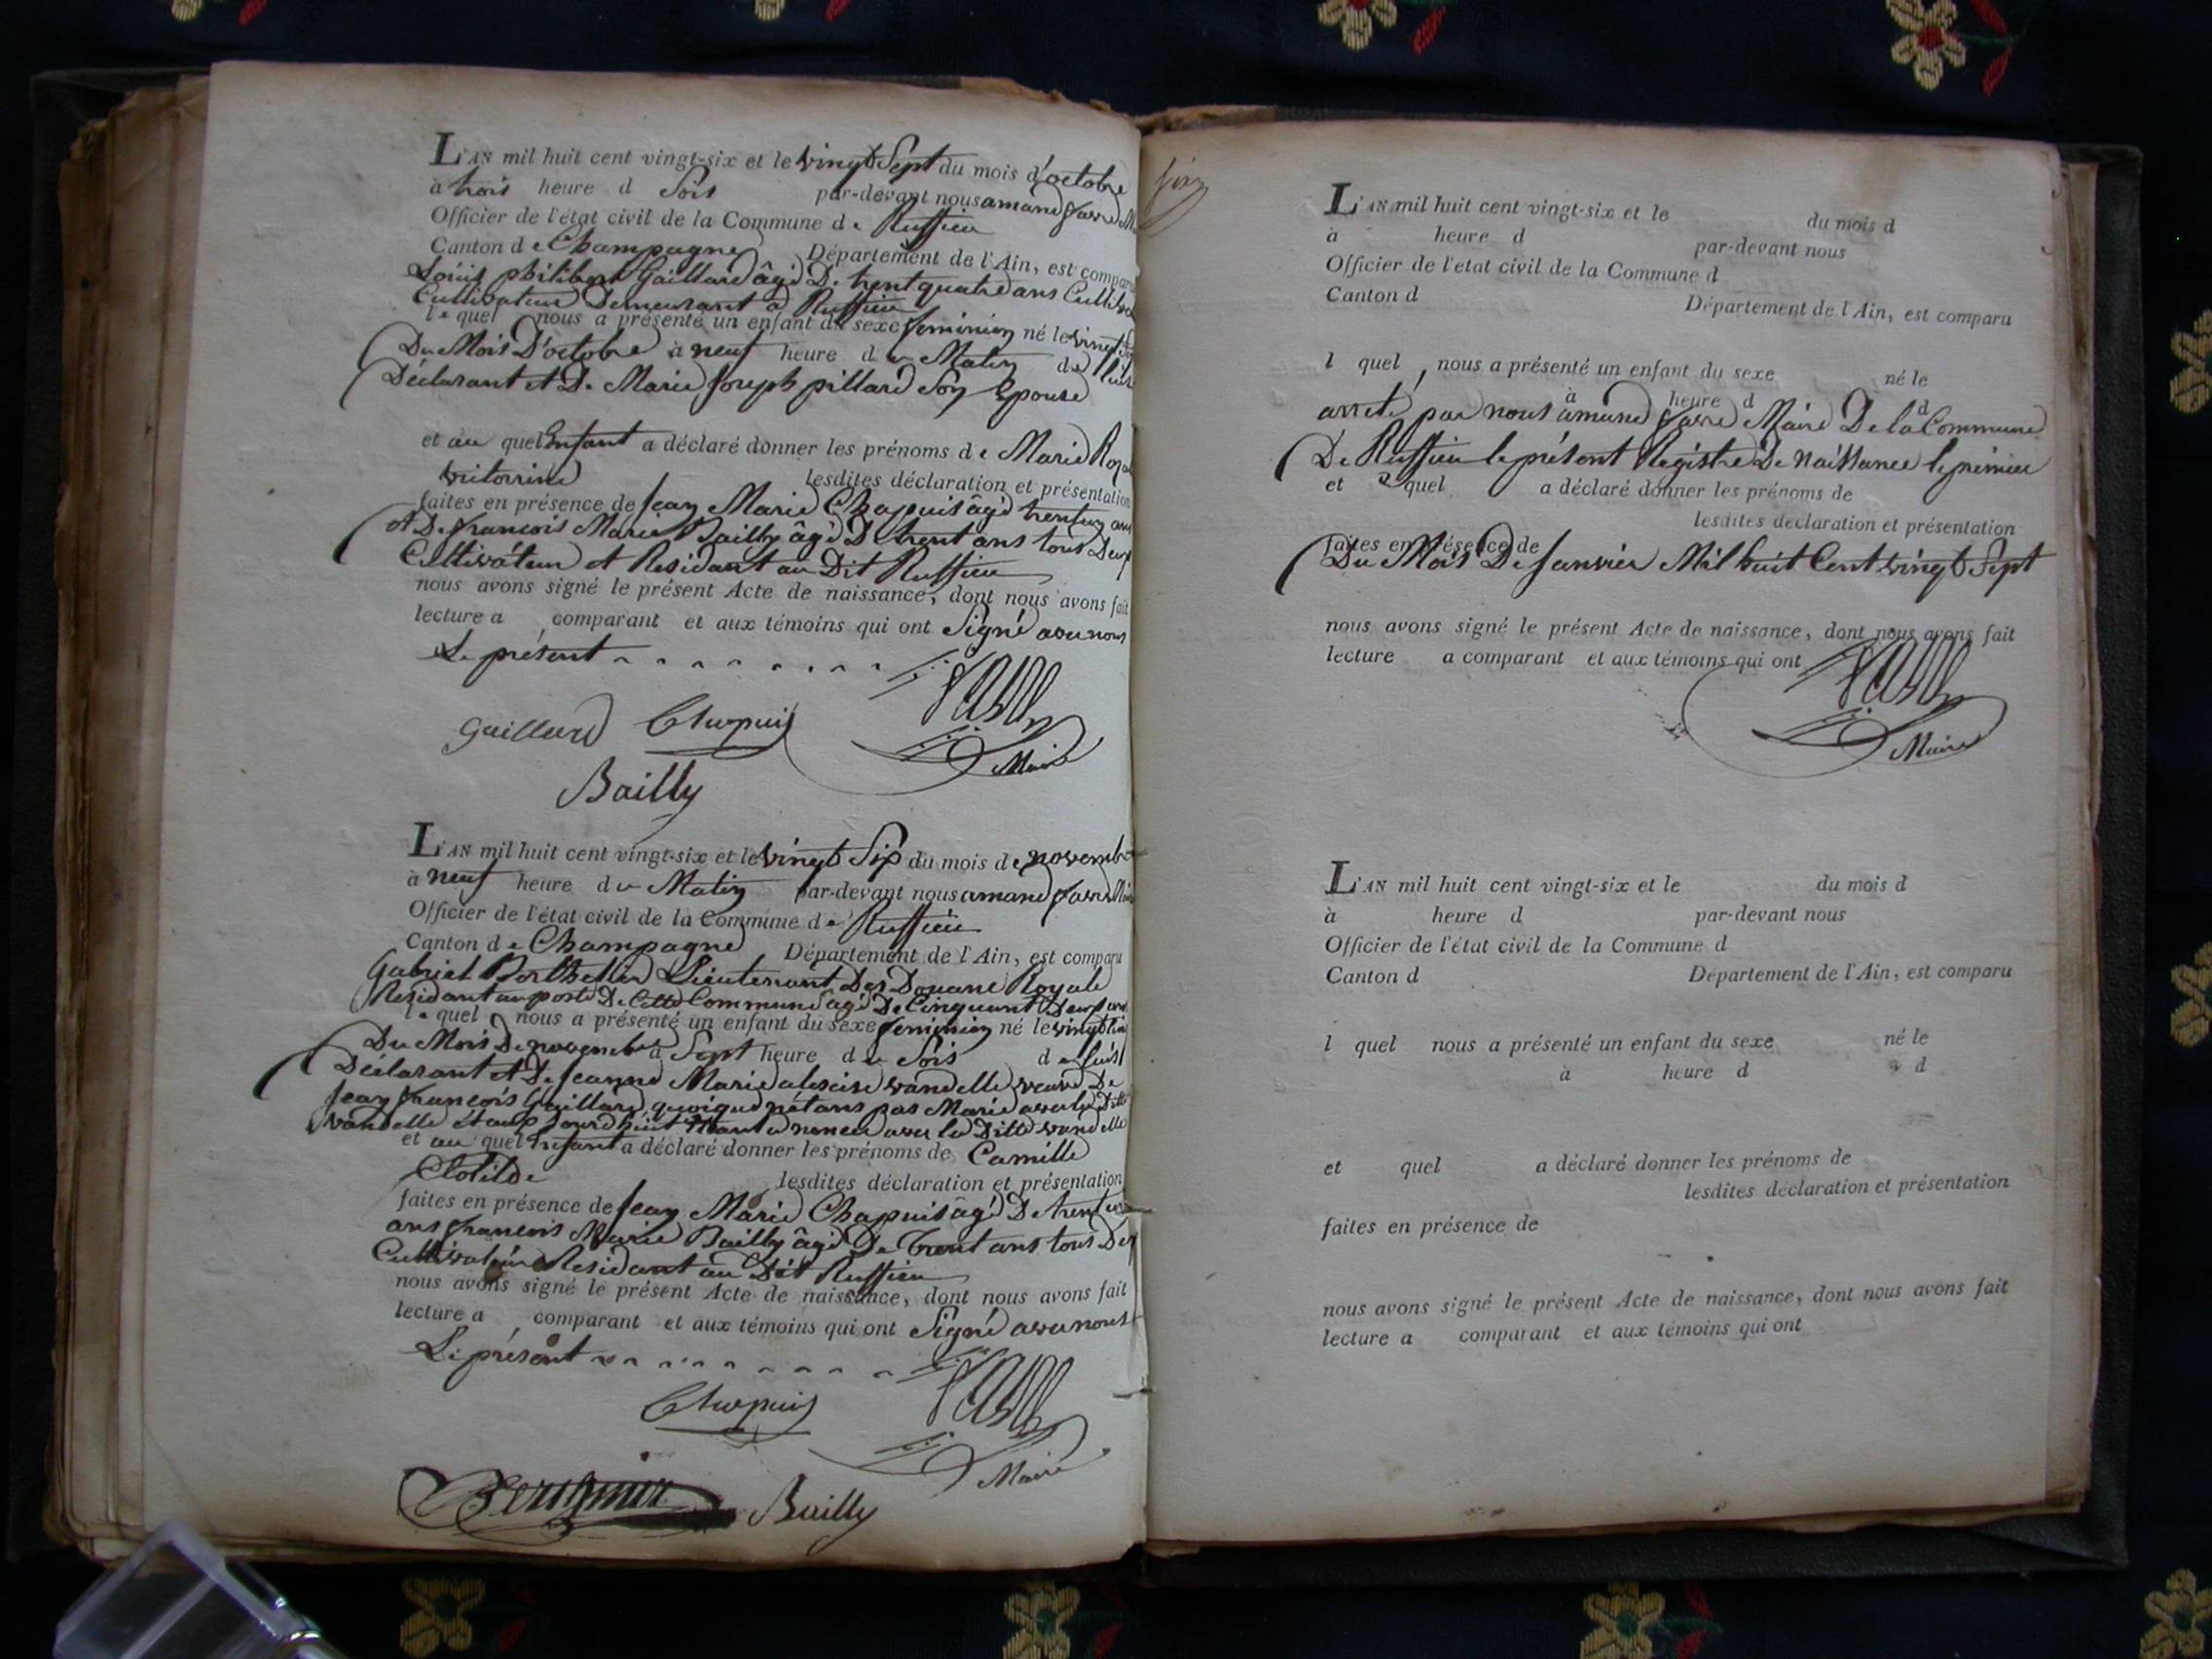 L'AN mil huit cent vingt-six et le vingt Sept du mois d'octobre
à trois heure d Soir par-devant nous amand favre
Officier de l'état civil de la Commune de Ruffieu
Canton de Champagne Département de l'Ain, est comparu
Louis philibert Gaillard âgé De trent quatre ans
Cultivateur Demeurant à Ruffieu
le quel nous a présenté un enfant du sexe feminien né le vingt
Du Mois D'octobre à neuf heure du Matin de
Déclarant et De Marie Joseph pillard Son Epouse
et au quel Enfant a déclaré donner les prénoms de Marie
victorine lesdites déclaration et présentation
faites en présence de Jean Marie Chapuis âgé trentun ans
et De francois Marie Bailly âgé De trent ans tous Deux
Cultivateur et Residant au Dit Ruffieu
nous avons signé le présent Acte de naissance, dont nous avons fait
lecture a comparant et aux témoins qui ont Signé avec nous
Le présent
Gaillard Chapuis
Maire
Bailly
L'AN mil huit cent vingt-six et le vingt Six du mois de novembre
à neuf heure du Matin par-devant nous amand favre
Officier de l'état civil de la Commune de Ruffieu
Canton de Champagne Département de l'Ain, est comparu
Gabriel Lieutenant Des Douane Royale
Residant au poste De Cette Commune âgé De Cinquant Deux ans
le quel nous a présenté un enfant du sexe feminien né le vingt
Du Mois De novembre à Sept heure du Soir de
Déclarant et De Jeanne Marie vandelle veuve De
Jean francois Gaillard, quoique n'étans pas Marié avec la Ditte
vandelle
et au quel Enfant a déclaré donner les prénoms de Camille
Clotilde lesdites déclaration et présentation
faites en présence de Jean Marie Chapuis âgé De trentun
ans francois Marie Bailly âgé De trent ans tous Deux
Cultivateur Residant au Dit Ruffieu
nous avons signé le présent Acte de naissance, dont nous avons fait
lecture a comparant et aux témoins qui ont Signé avec nous
Le présent
Chapuis
Maire
Bailly
L'AN mil huit cent vingt-six et le du mois d
à heure d par-devant nous
Officier de l'etat civil de la Commune d
Canton d Département de l'Ain, est comparu
l quel nous a présenté un enfant du sexe né le
à heure d d
arreté par nous amand favre Maire De la Commune
De Ruffieu le présent Registre De naissance le premier
et quel a déclaré donner les prénoms de
lesdites declaration et présentation
faites en présence de
Du Mois De Janvier Mil huit Cent vingt Sept
nous avons signé le présent Acte de naissance, dont nous avons fait
lecture a comparant et aux témoins qui ont
Maire
L'AN mil huit cent vingt-six et le du mois d
à heure d par-devant nous
Officier de l'état civil de la Commune d
Canton d Département de l'Ain, est comparu
l quel nous a présenté un enfant du sexe né le
à heure d d
et quel a déclaré donner les prénoms de
lesdites déclaration et présentation
faites en présence de
nous avons signé le présent Acte de naissance, dont nous avons fait
lecture a comparant et aux témoins qui ont